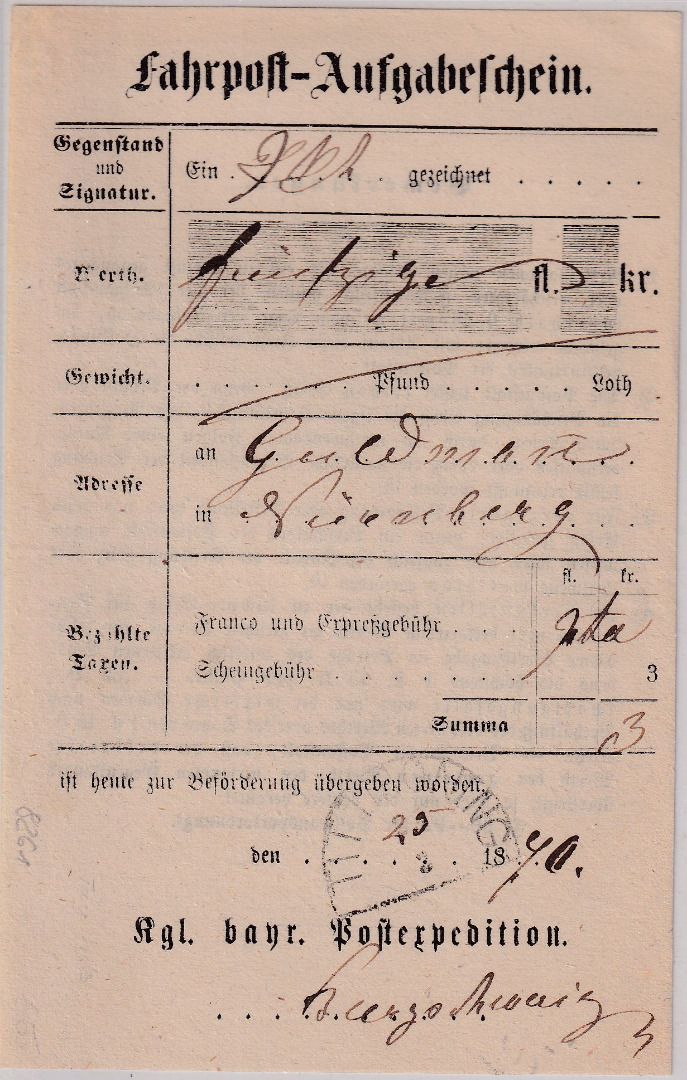 Fahrpost-Aufgabeschein.
Gegenstand und Signatur.
Ein . gezeichnet . . . . .
Werth.
fünfzig fl. kr.
Gewicht.
. . . . . . Pfund . . . . . . Loth
Adresse
an Guldmann.
in Nürnberg
fl. kr.
Bezahlte Taxen.
Franco und Expreßgebühr . .
Scheingebühr . . . . . 3
Summa 3
ist heute zur Beförderung übergeben worden.
den . 25 . 1870.
3
Kgl. bayr. Postexpedition.